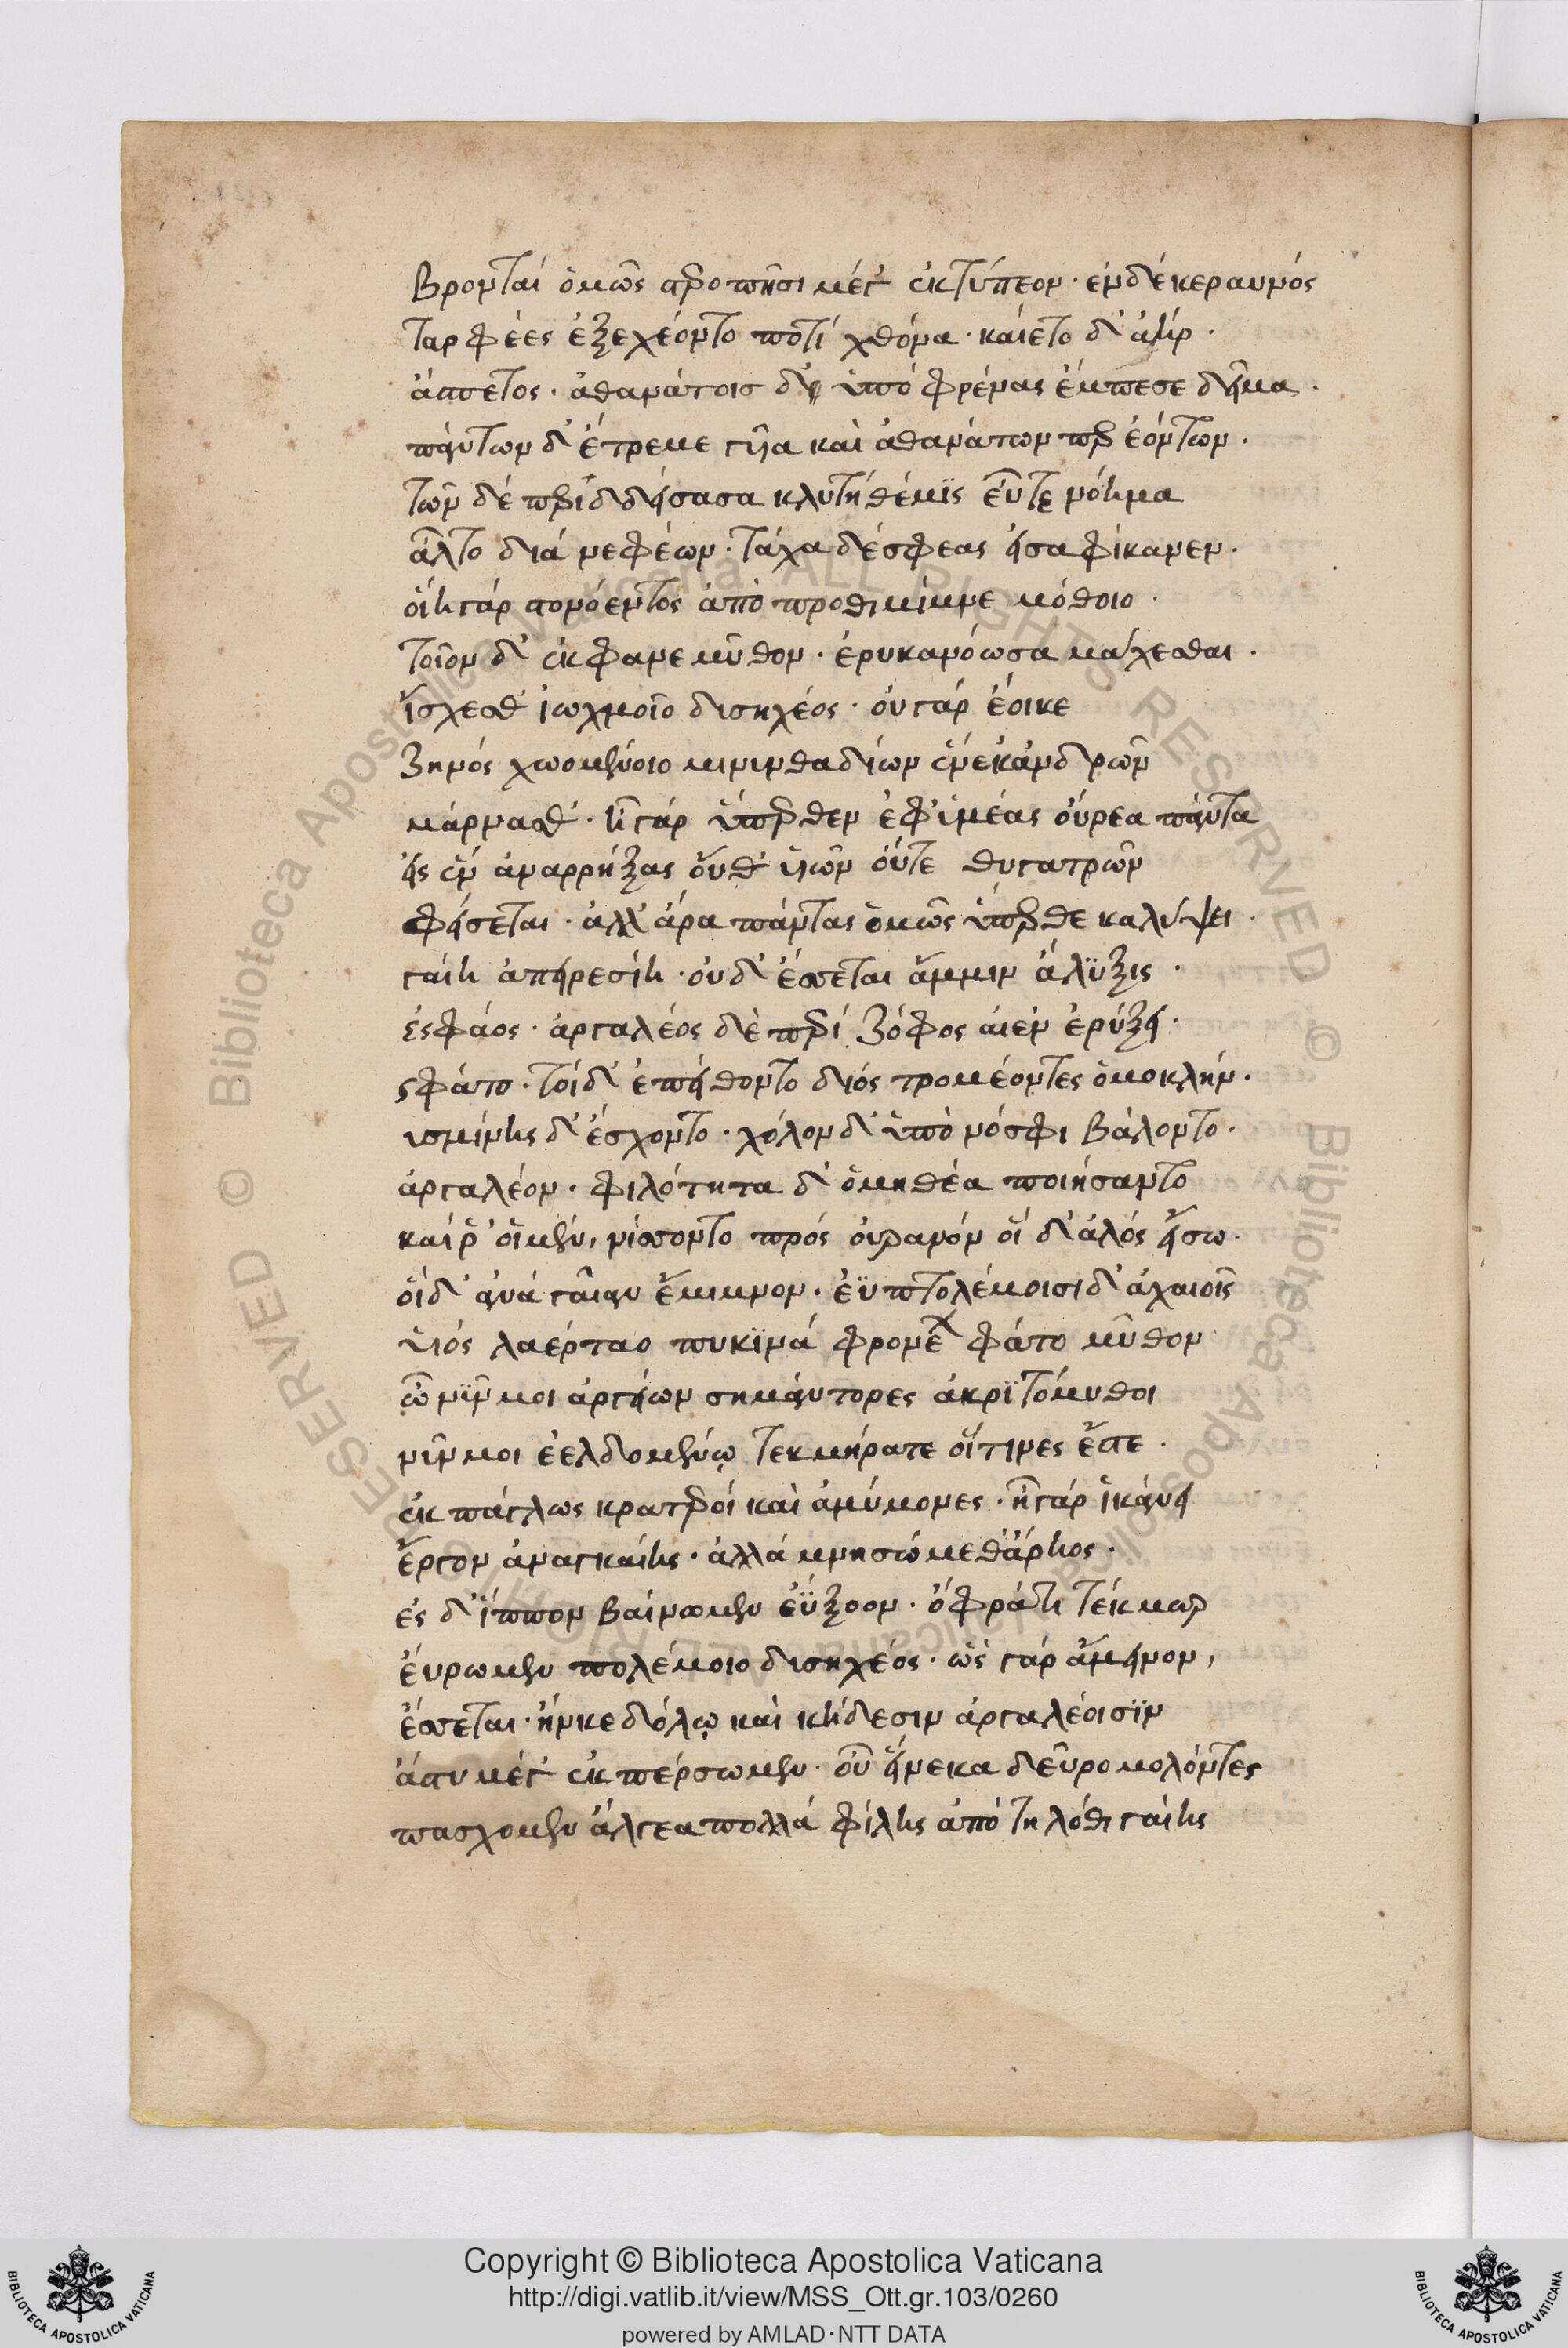 βρονταὶ ὁμῶς στεροπῇσι μέγ' ἐκτύπεον· ἐν δὲ κεραυνοὶ
ταρφέες ἐξεχέοντο ποτὶ χθόνα· καίετο δ' ἀήρ·
ἄσπετος· ἀθανάτοισ δ' ὑπὸ φρένας ἔμπεσε δεῖμα·
πάντων δ' ἔτρεμε γυῖα καὶ ἀθανάτων περ ἐόντων·
τῶν δὲ περιδδείσασα κλυτὴ θέμις εὖτε νόημα
ἆλτο διὰ νεφέων· τάχα δέ σφεας εἰσαφίκανεν·
οἴη γὰρ στονόεντος ἀπόπροθι μίμνε μόθοιο·
τοῖον δ' ἔκφανε μῦθον· ἐρυκανόωσα μάχεσθαι·
ἴσχεσθ' ἰωχμοῖο δυσηχέος· οὐ γὰρ ἔοικε
ζηνὸς χωομένοιο μινυνθαδίων ἕνεκ' ἀνδρῶν
μάρνασθ'· ἦ γὰρ ὕπερθεν ἐφ' ἡμέας οὔρεα πάντα
εἰς ἓν ἀναρρήξας οὔθ' υἱῶν οὔτε θυγατρῶν
φείσεται· ἀλλ' ἄρα πάντας ὁμῶς ὕπερθε καλύψει·
γαίη ἀπειρεσίη· οὐδ' ἔσσεται ἄμμιν ἄλυξις·
ἐς φάος· ἀργαλέος δὲ περὶ ζόφος αἰὲν ἐρύξει·
ς φάτο· τοὶ δ' ἐπείθοντο διὸς τρομέοντες ὁμοκλήν·
υσμίνης δ' ἔσχοντο· χόλον δ' ὑπὸ νόσφι βάλοντο·
ἀργαλέον· φιλότητα δ' ὁμηθέα ποιήσαντο
καί ῥ' οἱ μὲν, νίσσοντο πρὸς οὐρανὸν οἱ δ' ἁλὸς εἴσω·
οἱ δ' ἀνὰ γαῖαν ἔμιμνον· ἐϋπτολέμοισι δ' ἀχαιοῖς
υἱὸς λαέρταο πυκινὰ φρονέων φάτο μῦθον
ὦ νῦν μοι ἀργείων σημάντορες ἀκριτόμυθοι
νῦν μοι ἐελδομένῳ τεκμήρατε οἵτινες ἔστε·
ἐκπάγλως κρατεροὶ καὶ ἀμύμονες· ἦ γὰρ ἱκάνει
ἔργον ἀναγκαίης· ἀλλὰ μνησώμεθ' ἄρηος·
ἐς δ' ἵππον βαίνωμεν ἐΰξοον· ὄφρά τι τέκμωρ
εὕρωμεν πολέμοιο δυσηχέος· ὣς γὰρ ἄμεινον,
ἔσσεται· ἤν κε δόλῳ καὶ κήδεσιν ἀργαλέοισιν
ἄστυ μέγ' ἐκπέρσωμεν· οὗ εἵνεκα δεῦρο μολόντες
πασχομεν ἄλγεα πολλὰ φίλης ἀπὸ τηλόθι γαίης
Copyright © Biblioteca Apostolica Vaticana
http://digi.vatlib.it/view/MSS_Ott.gr.103/0260
powered by AMLAD·NTT DATA